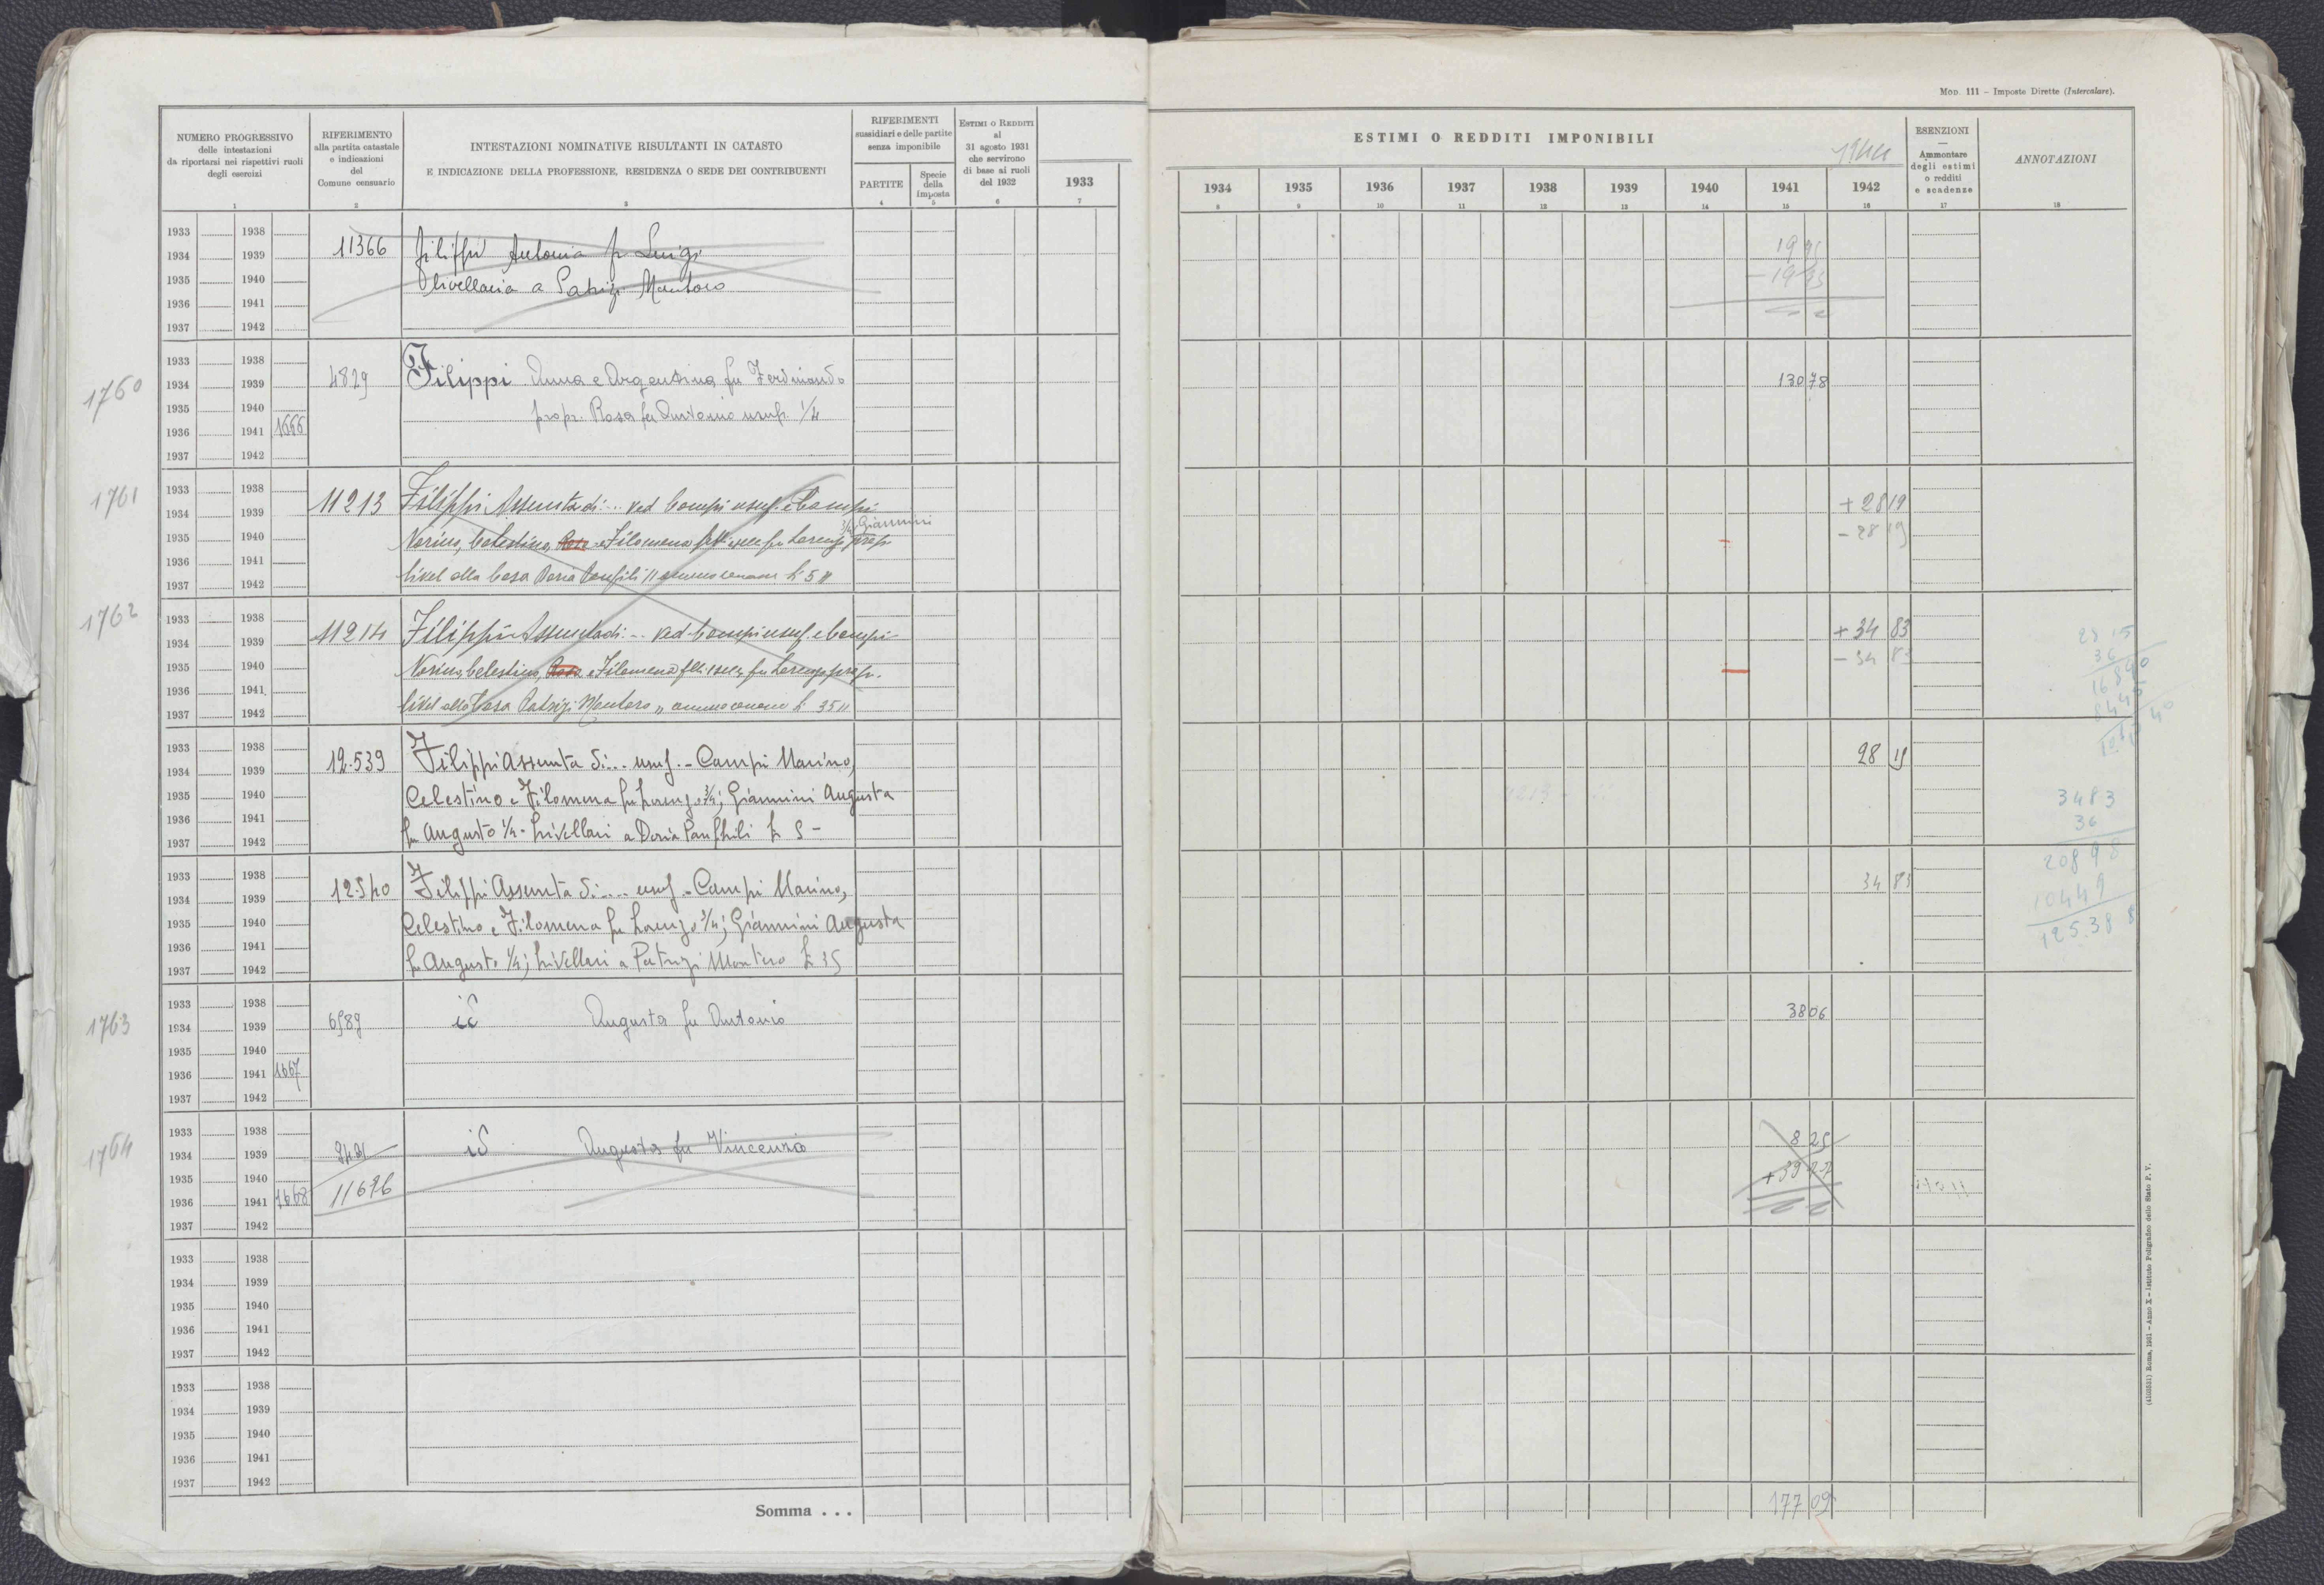 Mod. 111 - Imposte Dirette (Intercalare).
NUMERO PROGRESSIVO
delle intestazioni
da riportarsi nei rispettivi ruoli
degli esercizi
1
RIFERIMENTO
alla partita catastale
e indicazioni
del
Comune censuario
2
INTESTAZIONI NOMINATIVE RISULTANTI IN CATASTO
E INDICAZIONE DELLA PROFESSIONE, RESIDENZA O SEDE DEI CONTRIBUENTI
3
RIFERIMENTI
sussidiari e delle partite
senza imponibile
PARTITE
4
Specie
della
imposta
5
Estimi o Redditi
al
31 agosto 1931
che servirono
di base ai ruoli
del 1932
6
1933
7
ESTIMI O REDDITI IMPONIBILI
1944
1934 1935 1936 1937 1938 1939 1940 1941 1942
8 9 10 11 12 13 14 15 16
ESENZIONI
Ammontare
degli estimi
o redditi
e scadenze
17
ANNOTAZIONI
18
1933 1938
1934 1939 11366 Filippi Antonia fu Luigi
1935 1940 Olivellaria a Patrizi Montoro
1936 1941
1937 1942
1933 1938
1760 1934 1939 4829 Filippi Anna e Argentina fu Ferdinando 130 78
1935 1940 propr. Rosa fu Antonio usuf. 1/4
1936 1941 1666
1937 1942
1761 1933 1938
1934 1939 11213 Filippi Assunta di ... ved Campi usuf. e Campi + 28 19
1935 1940 Marino, Celestino, Rosa e Filomena fu Lorenzo 3/4 Giannini propr. - 28 19
1936 1941
1937 1942 livel alla Casa Doria Panfili
1762 1933 1938
1934 1939 11214 Filippi Assunta di ... ved. Campi usuf. e Campi + 34 83
1935 1940 Marino, Celestino, Rosa e Filomena fu Lorenzo propr. - 34 83
1936 1941
1937 1942 livel alla Casa Patrizi Montoro annuo canone £ 35
1933 1938
1934 1939 12.539 Filippi Assunta di... usuf. - Campi Marino, 28 19
1935 1940 Celestino e Filomena fu Lorenzo 3/4; Giannini Augusta
1936 1941
1937 1942 fu Augusto 1/4 - livellari a Doria Panfhili £ 5 -
1933 1938
1934 1939 12.540 Filippi Assunta di.... usuf. - Campi Marino, 34 83
1935 1940 Celestino e Filomena fu Lorenzo 3/4; Giannini Augusta
1936 1941
1937 1942 fu Augusto 1/4; livellari a Patrizi Montoro £ 35
3483
36
20898
10449
125.388
1933 1938
1763 1934 1939 6589 id Augusta fu Antonio 38 06
1935 1940
1936 1941 1667
1937 1942
1933 1938
1764 1934 1939 id Augusta fu Vincenzo 8 25
1935 1940
1936 1941 1668 11696
1937 1942
1933 1938
1934 1939
1935 1940
1936 1941
1937 1942
1933 1938
1934 1939
1935 1940
1936 1941
1937 1942
Somma . . . 177 09
(4103531) Roma, 1931 - Anno X - Istituto Poligrafico dello Stato P. V.